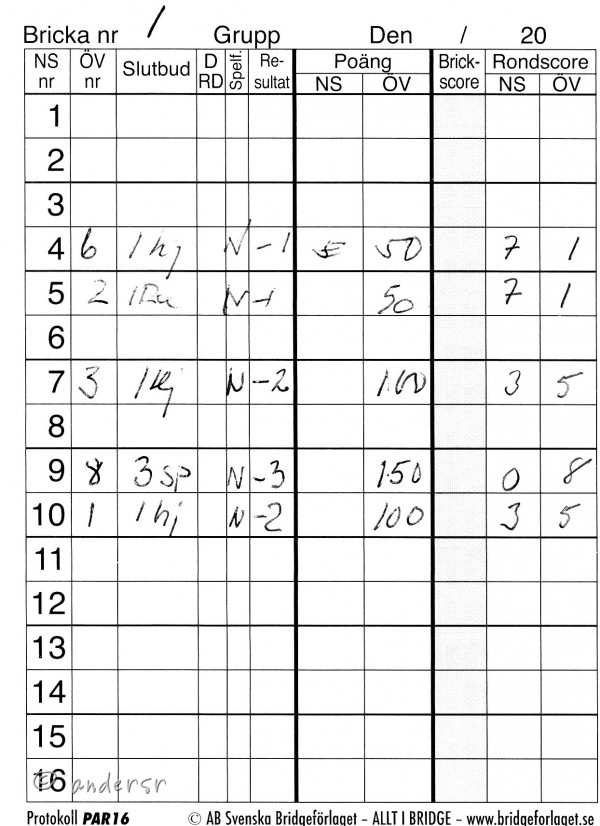 Bricka nr 1 Grupp Den / 20
NS nr ÖV nr Slutbud D RD Spelf. Re-sultat Poäng NS ÖV Brick-score Rondscore NS ÖV
1
2
3
4 6 1 hj N -1 50 7 1
5 2 N -1 50 7 1
6
7 3 1 hj N -2 100 3 5
8
9 8 3 sp N -3 150 0 8
10 1 1 hj N -2 100 3 5
11
12
13
14
15
16
© andersr
Protokoll PAR16 © AB Svenska Bridgeförlaget – ALLT I BRIDGE – www.bridgeforlaget.se